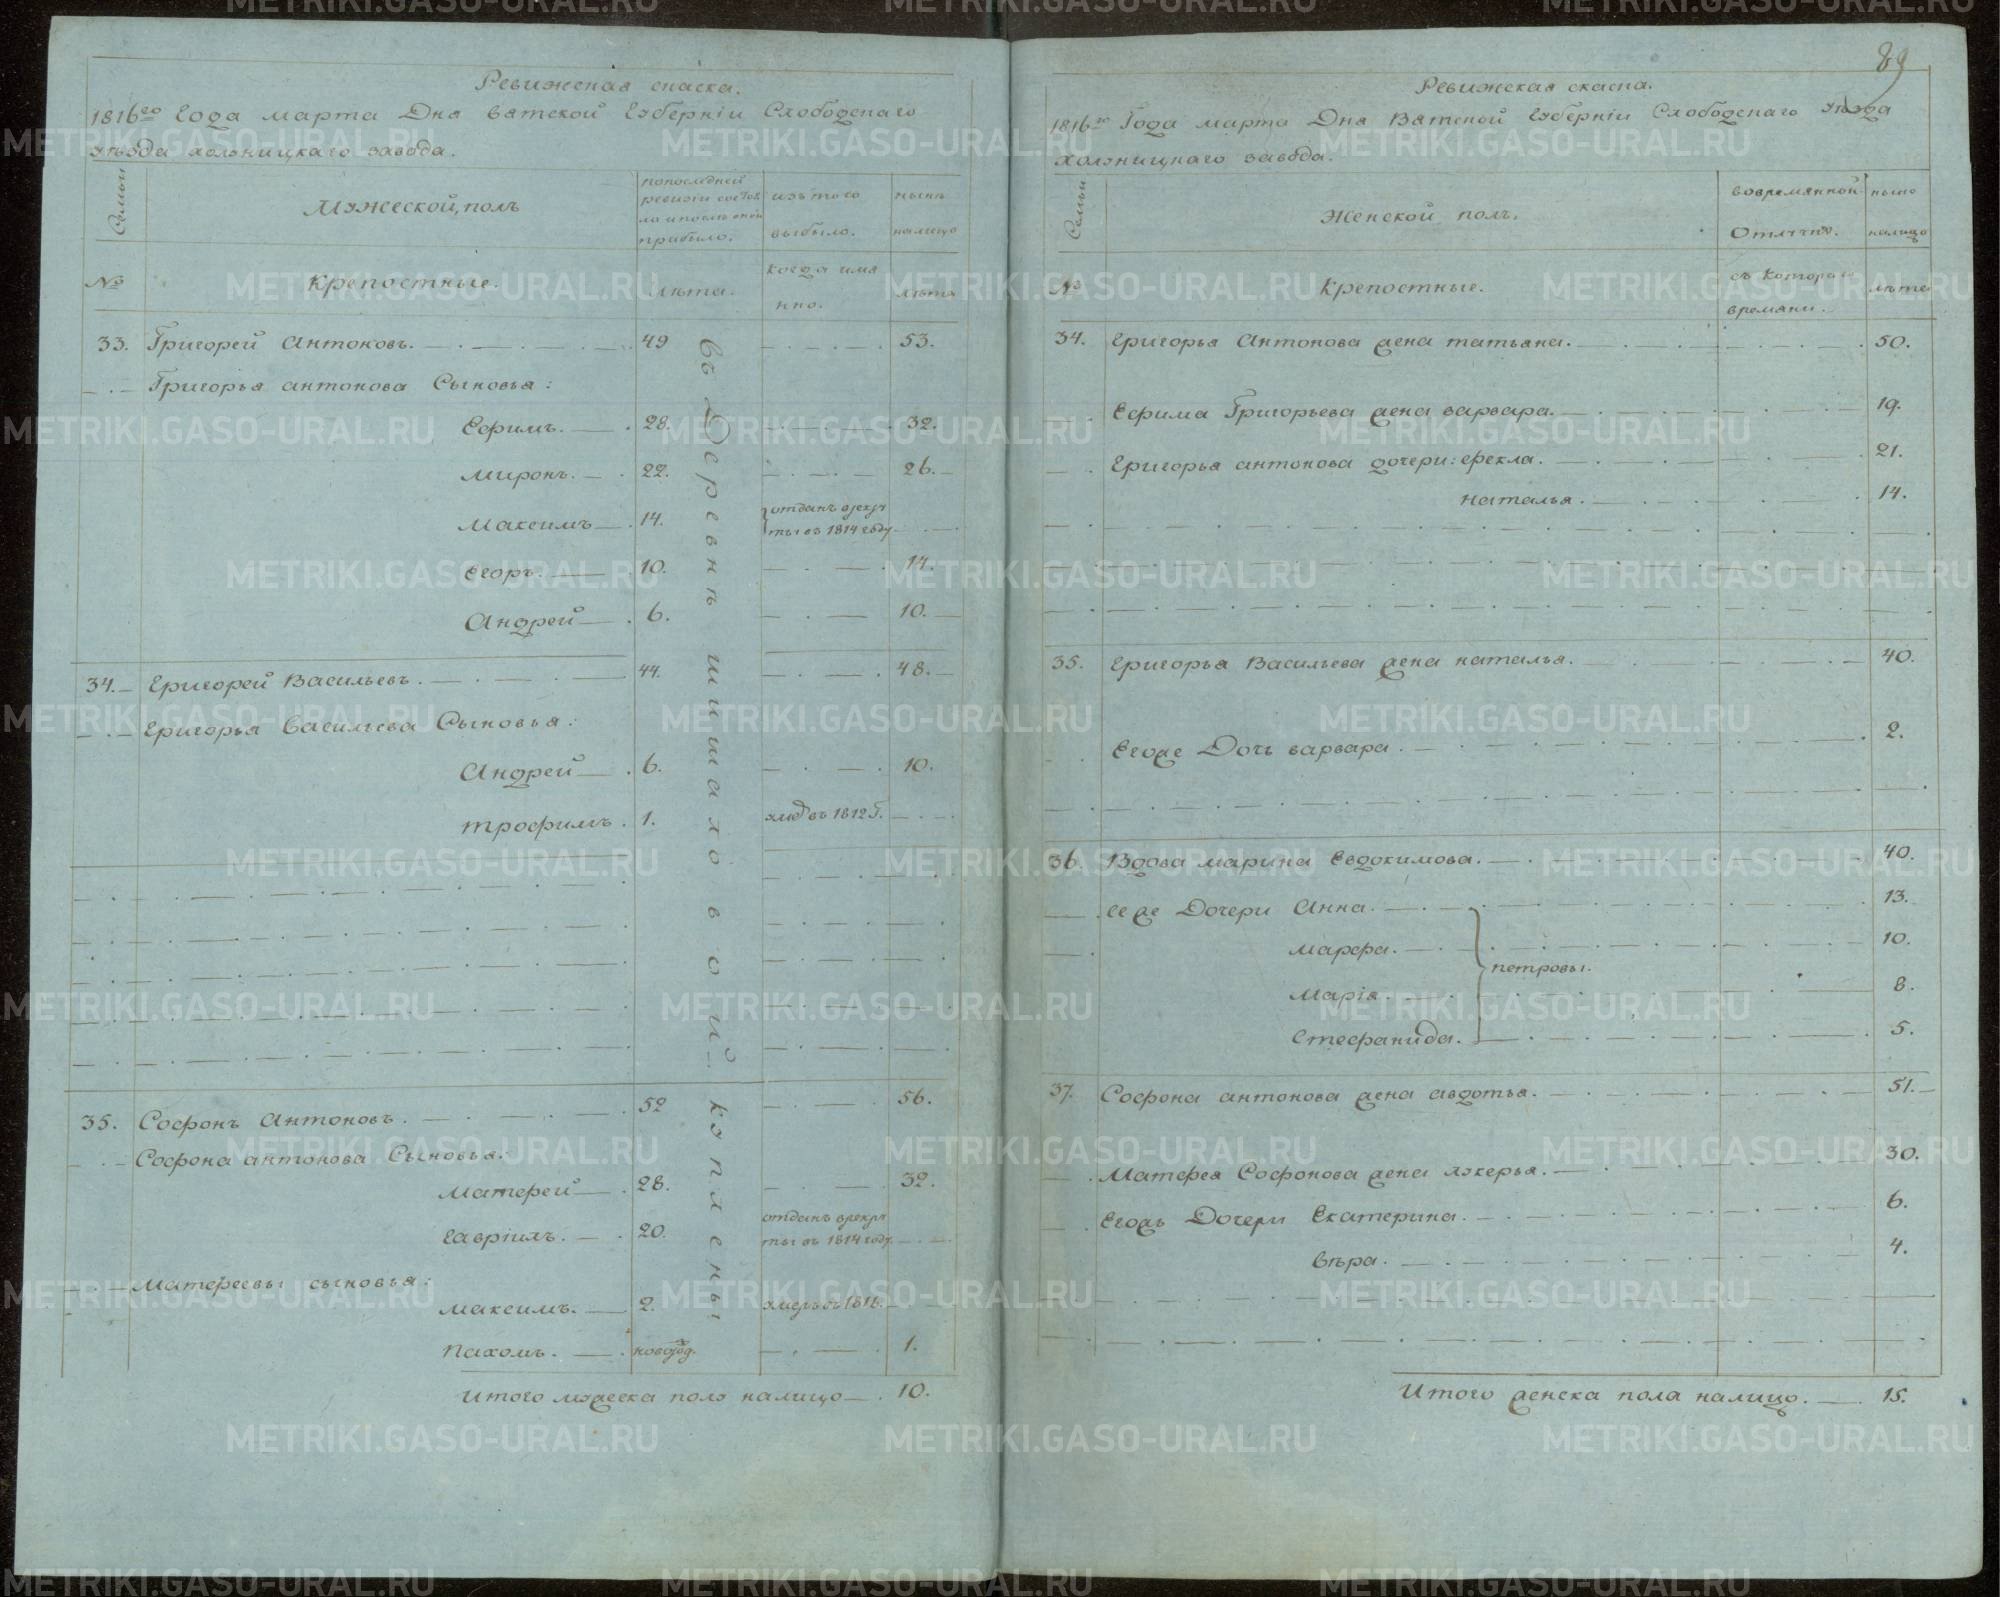 89
Ревижская скаска.
1816го Года марта Дня вятской Губерніи Слободскаго
уѣзда холуницкаго завода.
Семьи
Мужеской, полъ
попоследней
ревизіи состоя
ло ипослѣ оной
прибыло.
изъ того
выбыло.
нынѣ
налицо
№
Крепостные.
лѣта.
когда имя
нно.
лѣта
33. Григорей Антоновъ. 49 53.
Григорья антонова Сыновья:
Ефимъ. 28. 32.
миронъ. 22. 26.
Максимъ 14. отданъ врекру
ты въ 1814 году
Егоръ. 10. 14.
Андрей 6. 10.
34. Григорей Васильевъ. 44. 48.
Григорья Васильева Сыновья:
Андрей 6. 10.
трофимъ. 1. въ 1812 Г.
35. Софонъ Антоновъ. 52 56.
Софона антонова Сыновья:
матфей 28. 32.
гавріилъ. 20. отданъ врекру
ты въ 1814 году
матфеевы сыновья:
максимъ. 2. умеръ въ 1816.
пахомъ. новорожд. 1.
въ Деревнѣ шишаловой куплены
Итого мужеска полу налицо 10.
Ревижская скаска.
1816го Года марта Дня Вятской Губерніи Слободскаго уѣзда
холуницкаго завода.
Семьи
Женской полъ.
вовремянной
Отлучке.
ныне
налицо
№
Крепостные.
съ котораго
времяни.
лѣта
34. Григорья Антонова жена татьяна. 50.
Ефима Григорьева жена варвара. 19.
Григорья антонова дочери: фекла. 21.
наталья. 14.
35. Григорья Васильева жена наталья. 40.
Егоже Дочь варвара. 2.
36. Вдова марина Евдокимова. 40.
Ее же Дочери Анна. 13.
марфа. 10.
петровы.
Марія. 8.
Стефанида. 5.
37. Софона антонова жена авдотья. 51.
Матфея Софонова жена лукерья. 30.
Егожъ Дочери Екатерина. 6.
вѣра. 4.
Итого женска пола налицо. 15.